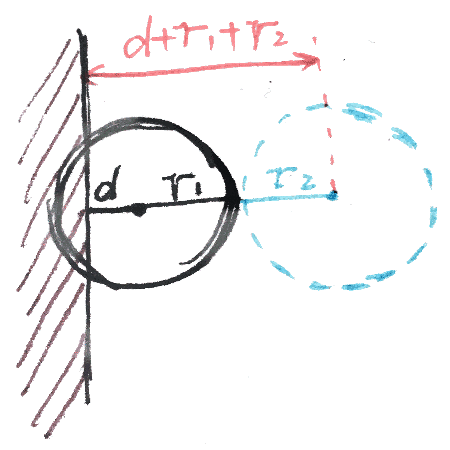 d+r₁+r₂
d r₁ r₂